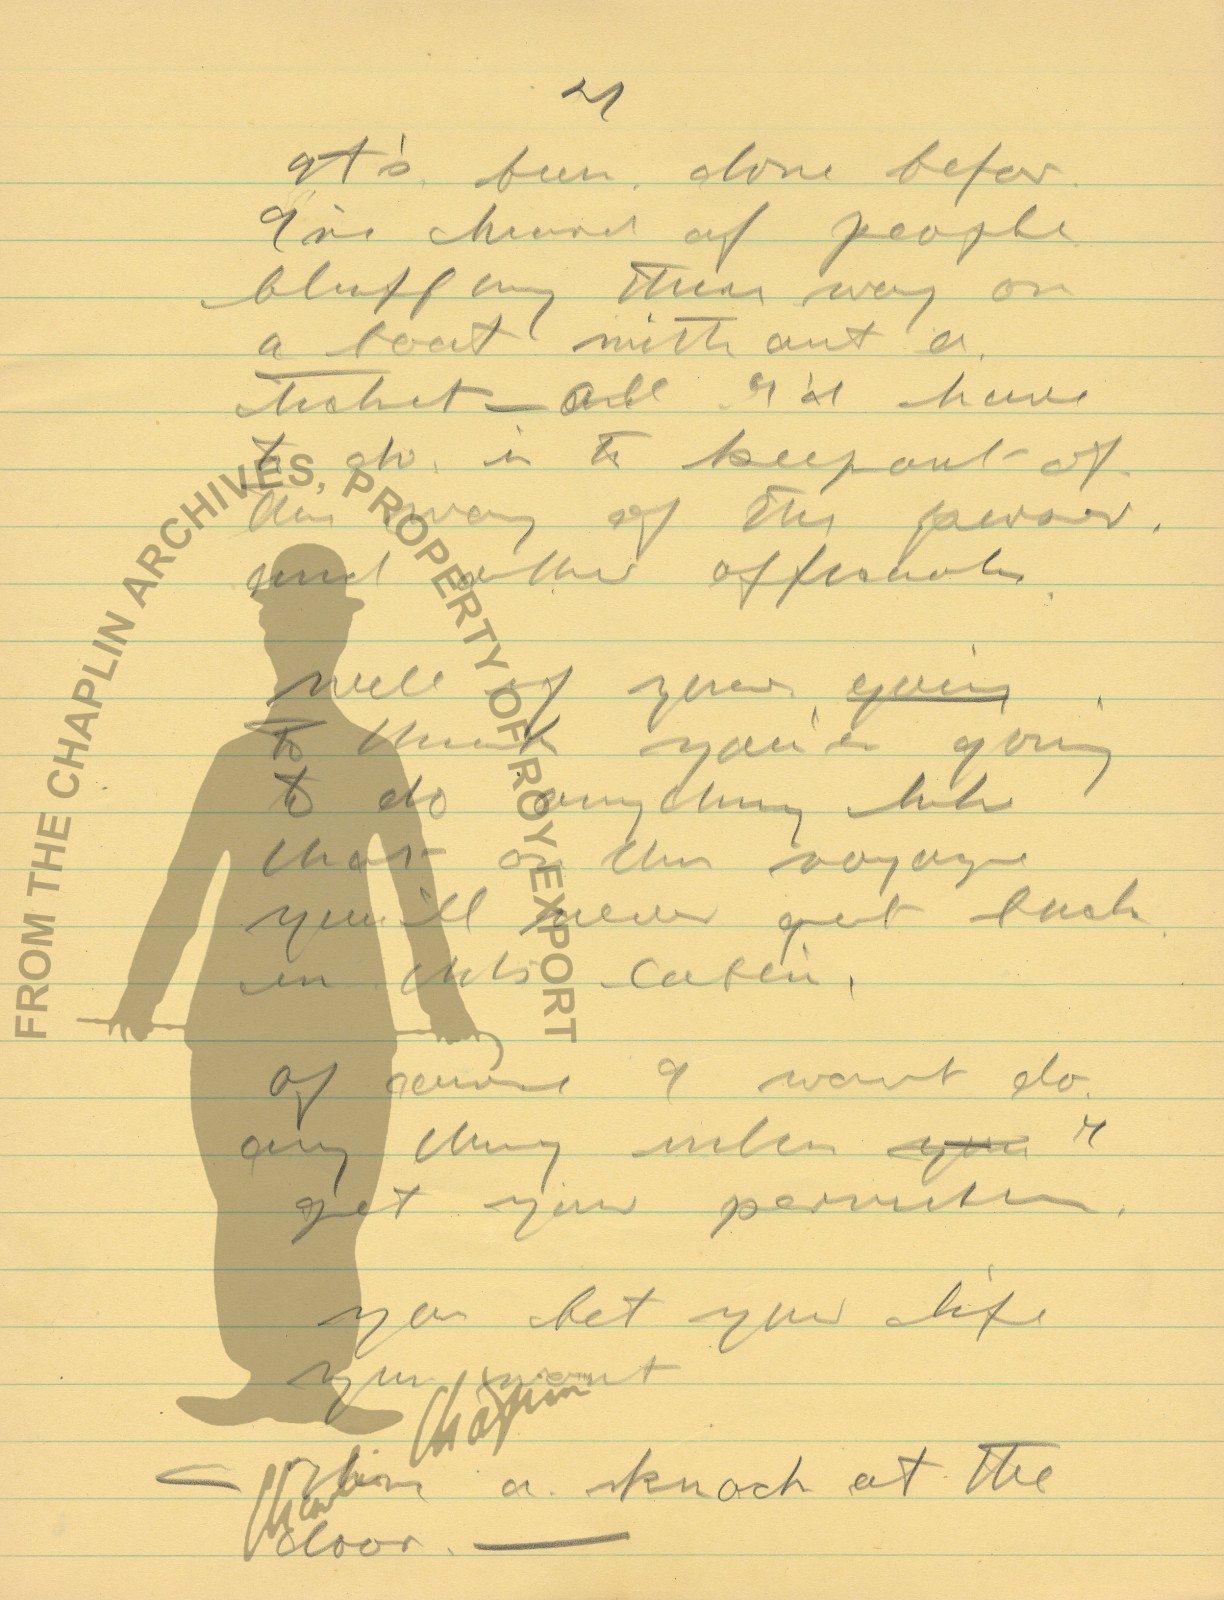 21
It's been done befor
I've heard of people
bluffing their way on
a boat without a
ticket — all I'd have
to do. is to keep out of
the way of the purser.
and other officials.
well if your going
to think you're going
to do anything like
that on this voyage
you'll never get back
in this cabin.
of course I wont do.
any thing unless you I
get your permission.
you bet your life
you wont
— There a knock at the
door. —
FROM THE CHAPLIN ARCHIVES, PROPERTY OF ROY EXPORT
Charlie Chaplin